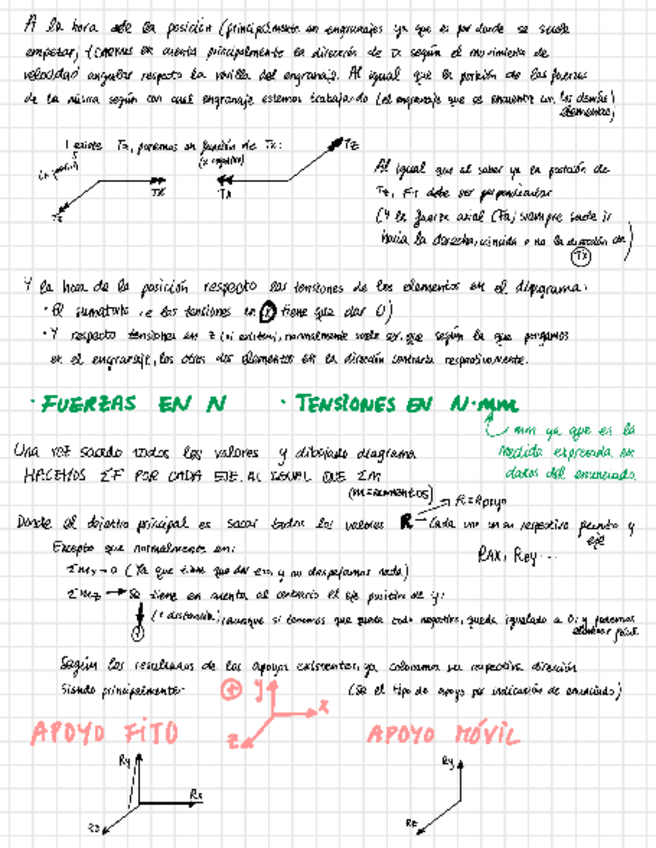 A la hora de la posición (principalmente en engranajes ya que es por donde se suele
empezar, tenemos en cuenta principalmente la dirección de Tx según el movimiento de
velocidad angular respecto la varilla del engranaje. Al igual que la posición de las fuerzas
de la misma según con cual engranaje estemos trabajando (el engranaje que se encuentre con los demás)
elementos,
existe Tz, ponemos en función de Tx:
(x negativo)
Tz
Tx
Tx
Tz
Al igual que al saber ya la posición de
Tz, Fr debe ser perpendicular
(Y la fuerza axial (Fa) siempre suele ir
hacia la derecha, coincida o no la dirección de)
Tx
Y la hora de la posición respecto las tensiones de los elementos en el diagrama:
· El sumatorio de las tensiones en tiene que dar 0)
· Y respecto tensiones en z (si existen), normalmente suele ser, que según la que pongamos
en el engranaje, los otros dos elementos en la dirección contraria respectivamente.
· FUERZAS EN N · TENSIONES EN N·mm
mm ya que es la
medida expresada en
datos del enunciado.
Una vez sacado todos los valores y dibujado diagrama
HACEMOS ΣF POR CADA EJE. AL IGUAL QUE ΣM
(M=MOMENTOS)
R=Apoyo
Donde el objetivo principal es sacar todos los valores R Cada uno en su respectivo punto y
eje
RAx, Rey ...
Excepto que normalmente en:
ΣMx→0 (Ya que tiene que dar cero, y no despejamos nada)
ΣMz → Se tiene en cuenta al contrario el eje positivo de y:
(- distancia), aunque si tenemos que queda todo negativo, queda igualado a 0; y podemos
Según los resultados de los apoyos existentes, ya colocamos su respectiva dirección
siendo principalmente: (Se el tipo de apoyo por indicación de enunciado)
+ y x z
APOYO FIJO APOYO MÓVIL
Ry
Rx
Rz
Ry
Rz